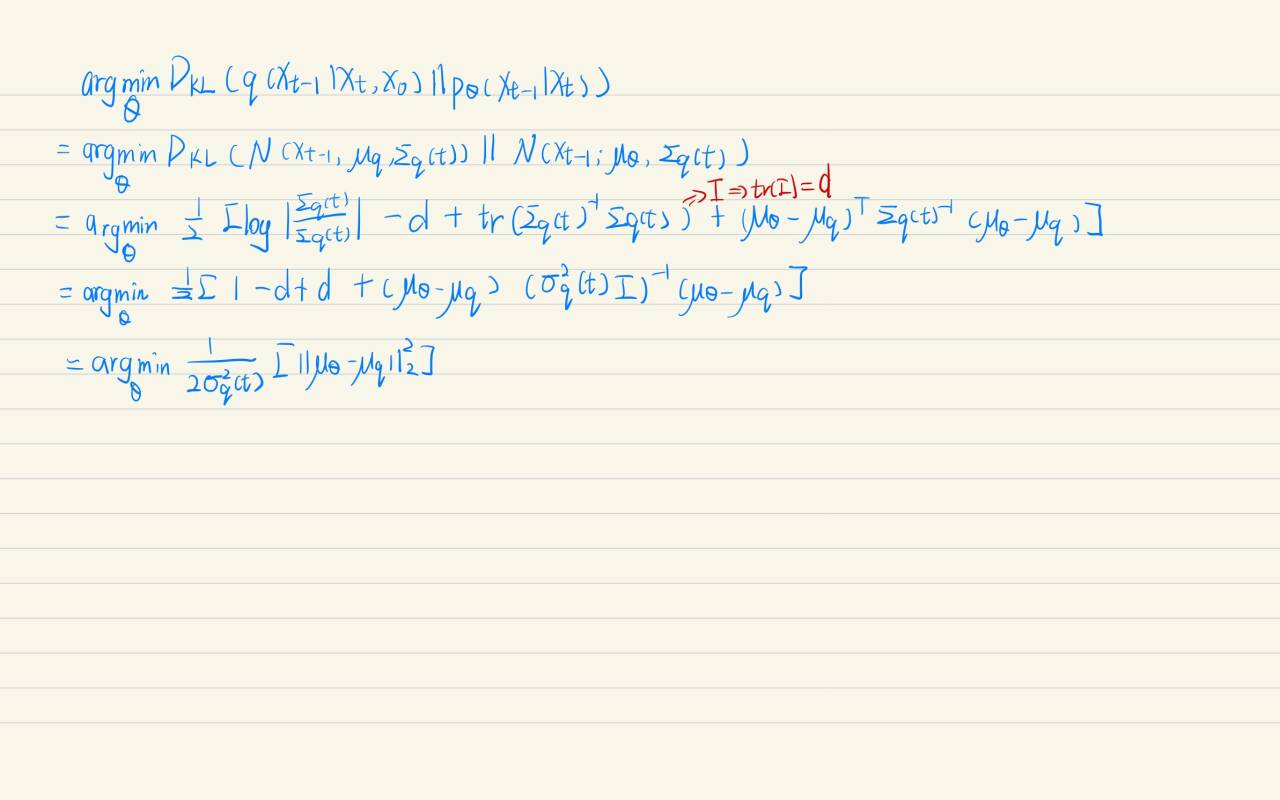 argmin_θ D_KL (q(x_{t-1}|x_t, x_0) || p_θ(x_{t-1}|x_t))
= argmin_θ D_KL (N(x_{t-1}, μ_q, Σ_q(t)) || N(x_{t-1}; μ_θ, Σ_q(t))
⇒ I ⇒ tr(I) = d
= argmin_θ 1/2 [log |Σ_q(t)/Σ_q(t)| - d + tr(Σ_q(t)^{-1} Σ_q(t)) + (μ_θ - μ_q)^T Σ_q(t)^{-1} (μ_θ - μ_q)]
= argmin_θ 1/2 [1 - d + d + (μ_θ - μ_q) (σ_q^2(t) I)^{-1} (μ_θ - μ_q)]
= argmin_θ 1/(2σ_q^2(t)) [||μ_θ - μ_q||_2^2]